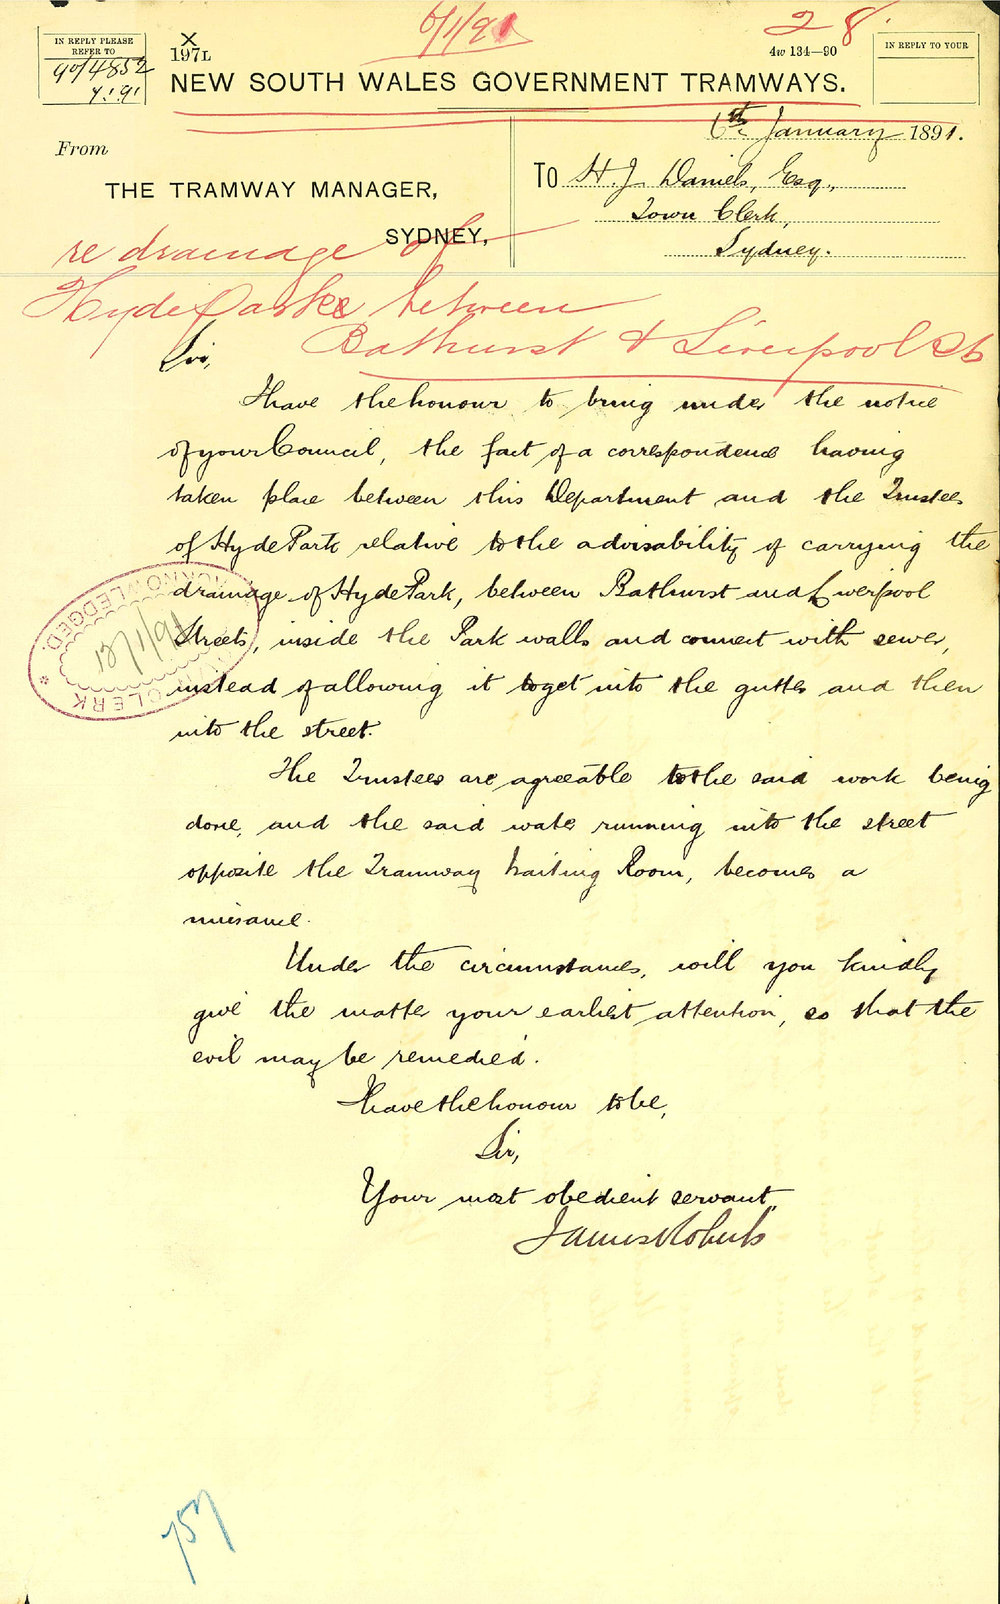 6/1/91
28
IN REPLY PLEASE
REFER TO
90/4852
7.1.91
X
197L
4w 134—90
IN REPLY TO YOUR
NEW SOUTH WALES GOVERNMENT TRAMWAYS.
6th January 1891.
From
THE TRAMWAY MANAGER,
SYDNEY,
To H. J. Daniels, Esq.,
Town Clerk,
Sydney.
re drainage of
Hyde Park between
Bathurst & Liverpool Sts
Sir,
I have the honour to bring under the notice
of your Council, the fact of a correspondence having
taken place between this Department and the Trustees
of Hyde Park relative to the advisability of carrying the
drainage of Hyde Park, between Bathurst and Liverpool
Streets, inside the Park walls and connect with sewer,
instead of allowing it to get into the gutter and then
into the street.
ACKNOWLEDGED.
CLERK
The Trustees are agreeable to the said work being
done, and the said water running into the street
opposite the Tramway Waiting Room, becomes a
nuisance.
Under the circumstances, will you kindly
give the matter your earliest attention, so that the
evil may be remedied.
I have the honour to be,
Sir,
Your most obedient servant,
James Roberts
757